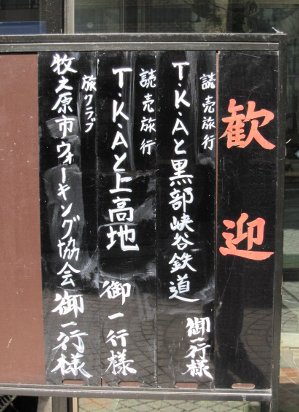 歓迎
読売旅行
T・K・Aと黒部峡谷鉄道
御一行様
読売旅行
T・K・Aと上高地
御一行様
旅クラブ
牧之原市ウォーキング協会御一行様